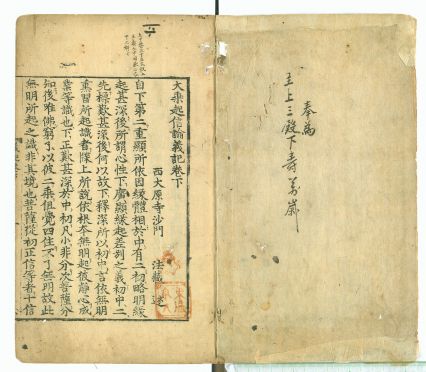 奉為
主上三殿下壽萬歲
大乘起信論義記卷下
西大原寺沙門 法藏 述
自下第二重顯所依因緣體相於中有二初略明緣
起甚深後所謂心性下廣顯緣起差別之義初中二
先標歎甚深後何以故下釋深所以初中言依無明
熏習所起識者牒上所說依根本無明起彼靜心成
業等識也下正歎甚深於中初凡小非分次菩薩分
知後唯佛窮了以彼二乘但覺四住不了無明故此
無明所起之識非其境也菩薩從初正信等者十信